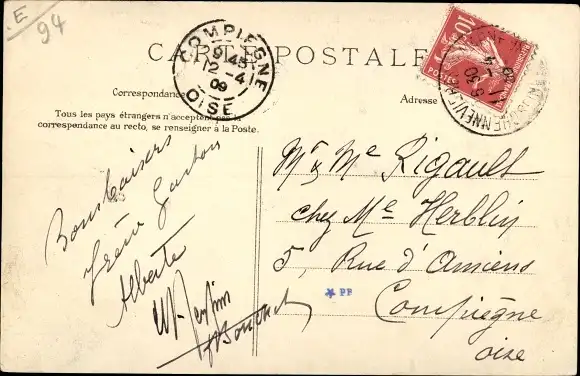 E
94
CARTE POSTALE
Correspondance
Adresse
Tous les pays étrangers n'acceptent pas la
correspondance au recto, se renseigner à la Poste.
COMPIEGNE
9 45
12 - 4
09
OISE
10
POSTES
Bons baisers
Frère Gaston
Alberte
Mr & Me Rigault
chez Me Herblin
5, Rue d'Amiens
Compiègne
oise
* PF